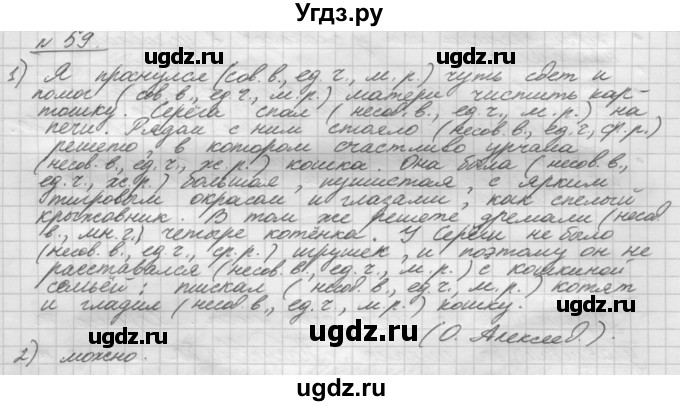 Угдз.ру
№ 59.
1) Я проснулся (сов. в., ед. ч., м. р.) чуть свет и
помог (сов. в., ед. ч., м. р.) матери чистить кар-
тошку. Серёга спал (несов. в., ед. ч., м. р.) на
печи. Рядом с ним стояло (несов. в., ед. ч., ср. р.)
решето, в котором счастливо урчала
(несов. в., ед. ч., ж. р.) кошка. Она была (несов. в.,
ед. ч., ж. р.) большая, пушистая, с ярким
тигровым окрасом и глазами, как спелый
крыжовник. В том же решете дремали (несов.
в., мн. ч.) четыре котёнка. У Серёги не было
(несов. в., ед. ч., ср. р.) игрушек, и поэтому он не
расставался (несов. в., ед. ч., м. р.) с кошкиной
семьёй: тискал (несов. в., ед. ч., м. р.) котят
и гладил (несов. в., ед. ч., м. р.) кошку.
(О. Алексеев.).
2) можно.
ugdz.ru
ugdz.ru
ugdz.ru
ugdz.ru
ugdz.ru
ugdz.ru
ugdz.ru
ugdz.ru
ugdz.ru
ugdz.ru
ugdz.ru
ugdz.ru
ugdz.ru